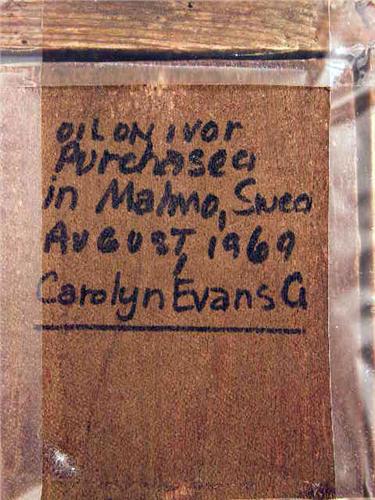 OIL ON IVOR
Purchased
in Malmo, Swed
AUGUST, 1969
Carolyn Evans G